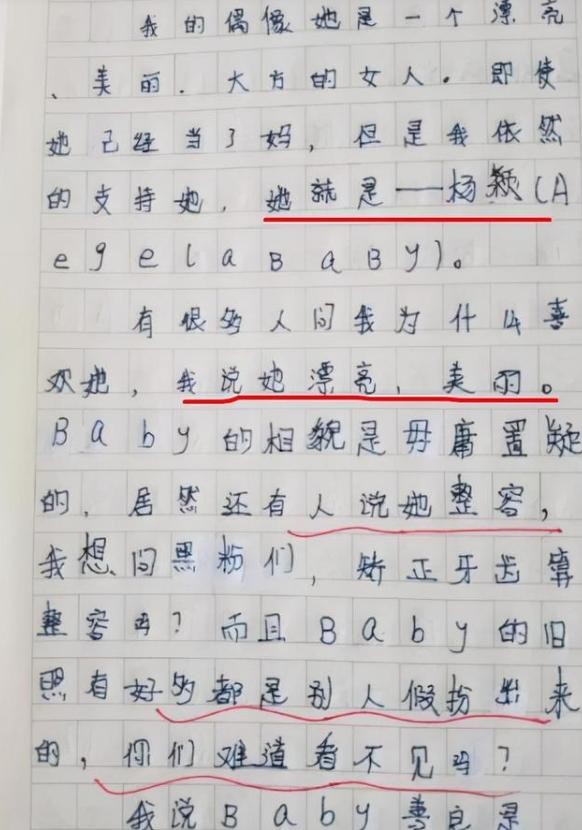 我的偶像她是一个漂亮
、美丽.大方的女人。即使
她己经当了妈,但是我依然
的支持她,她就是——杨颖(A
egelaBaBy)。
有很多人问我为什么喜
欢她,我说她漂亮、美丽。
Baby的相貌是毋庸置疑
的,居然还有人说她整容,
我想问黑粉们,矫正牙齿算
整容吗?而且Baby的旧
照有好多都是别人假扮出来
的,你们难道看不见吗?
我说Baby善良是